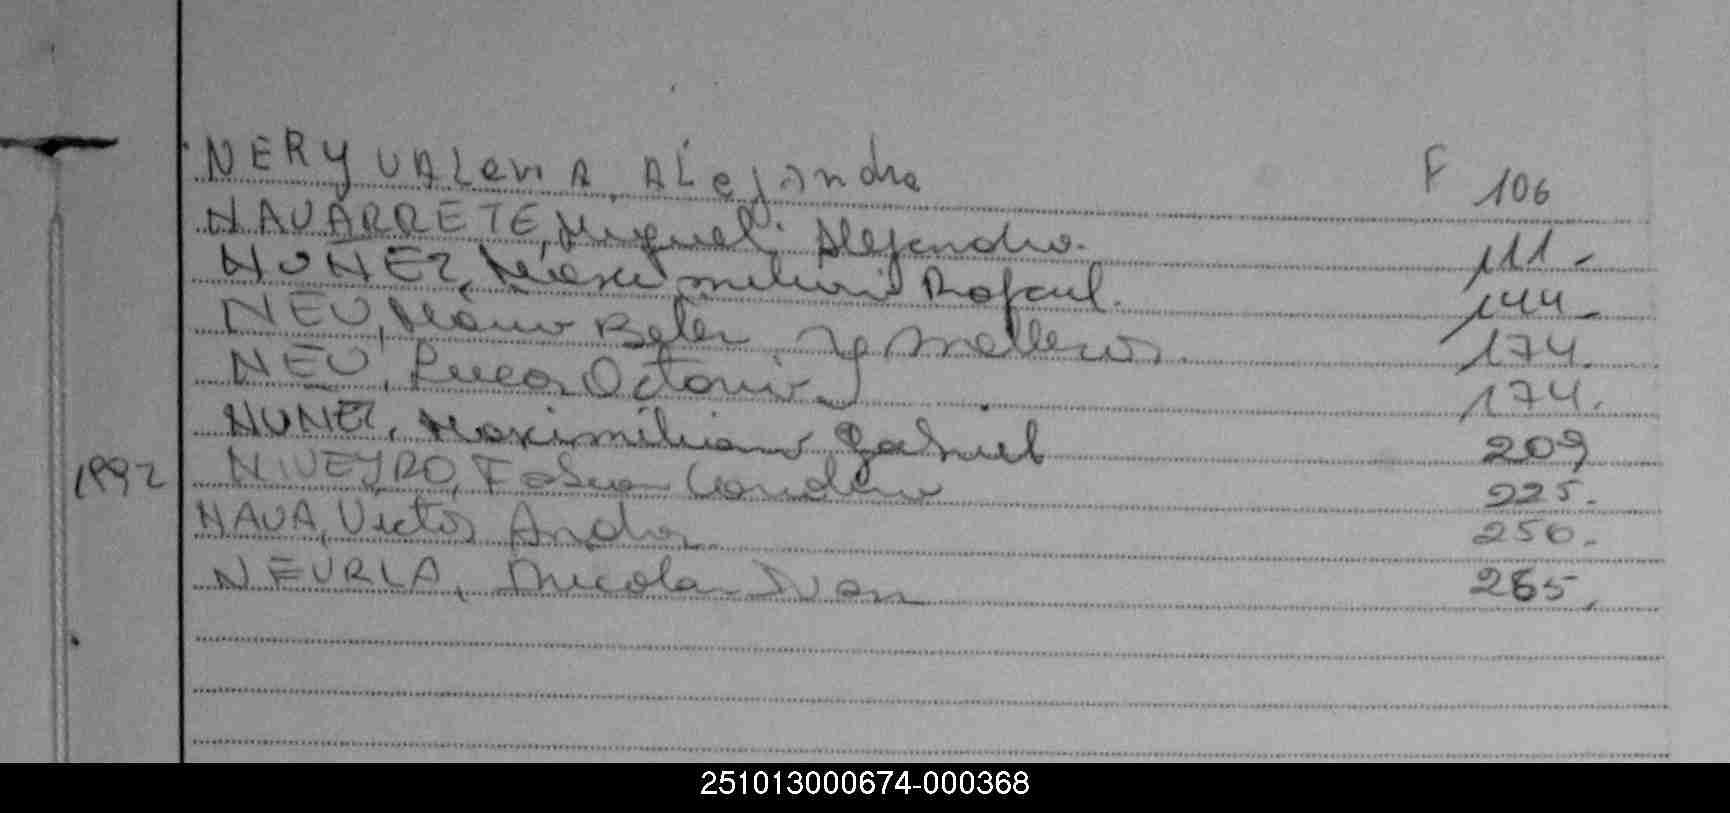 NERY VALeria Alejandra F 106
NAVARRETE, Miguel Alejandro. 111.-
NUÑEZ, Maximiliano Rafael. 144.-
NEU, María Belén y mellizos. 174.
NEU, Lucas Octavio 174.
NUÑEZ, Maximiliano Gabriel 209
1992 NIVEYRO, Fabian 225.
NAVA, Victor Andres 250.
NEURLA, Nicolas Ivan 265.
251013000674-000368